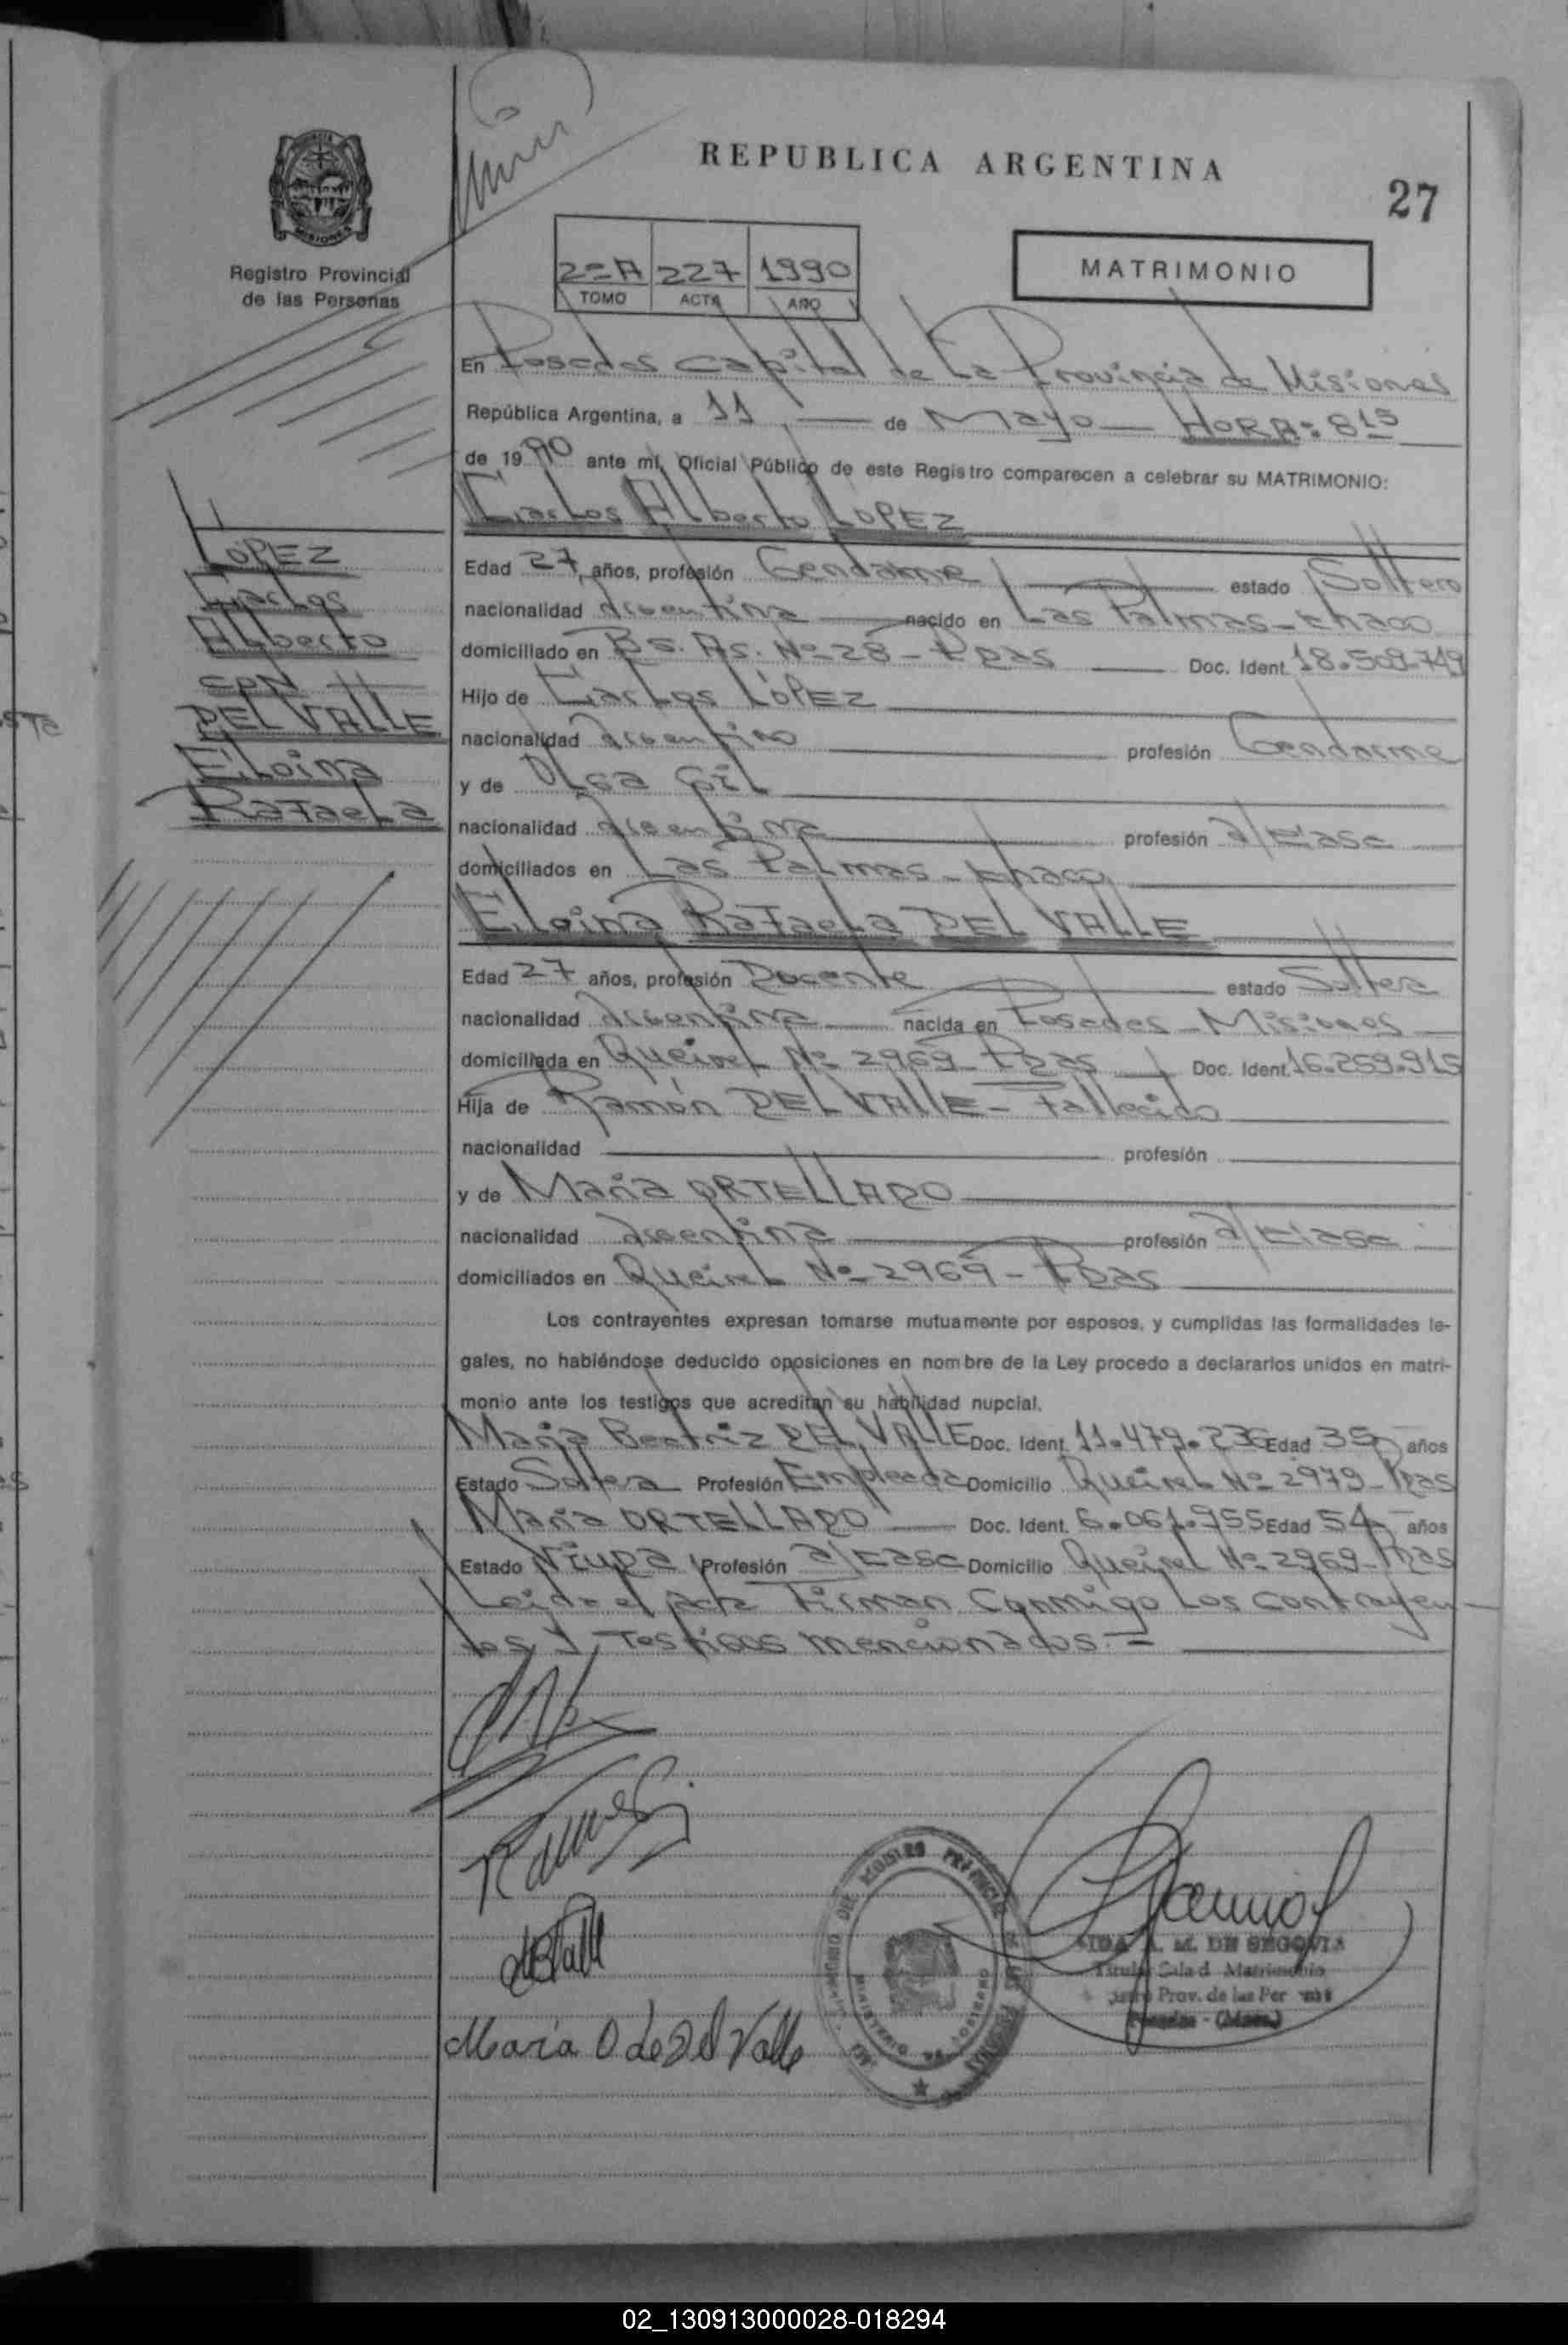 REPUBLICA ARGENTINA
27
MISIONES
Registro Provincial
de las Personas
2º A 227 1990
TOMO ACTA AÑO
MATRIMONIO
En Posadas Capital de La Provincia de Misiones
República Argentina, a 11 de Mayo HORA: 8 15
de 1990 ante mí, Oficial Público de este Registro comparecen a celebrar su MATRIMONIO:
Carlos Alberto LOPEZ
LOPEZ
Carlos
Alberto
CON
DEL VALLE
Eloina
Rafaela
Edad 27 años, profesión Gendarme estado Soltero
nacionalidad argentina nacido en Las Palmas - Chaco
domiciliado en Bs. As. Nº 28 - Pdas Doc. Ident. 18.509.749
Hijo de Carlos LÓPEZ
nacionalidad argentino profesión Gendarme
y de Olga Gil
nacionalidad argentina profesión a/casa
domiciliados en Las Palmas - Chaco
Eloina Rafaela DEL VALLE
Edad 27 años, profesión Docente estado Soltera
nacionalidad argentina nacida en Posadas - Misiones
domiciliada en Queirel Nº 2969 Pdas Doc. Ident. 16.259.915
Hija de Ramón DEL VALLE - Fallecido
nacionalidad profesión
y de María ORTELLADO
nacionalidad argentina profesión a/casa
domiciliados en Queirel Nº 2969 - Pdas
Los contrayentes expresan tomarse mutuamente por esposos, y cumplidas las formalidades le-
gales, no habiéndose deducido oposiciones en nombre de la Ley procedo a declararlos unidos en matri-
monio ante los testigos que acreditan su habilidad nupcial.
María Beatriz DEL VALLE Doc. Ident. 11.479.236 Edad 35 años
Estado Soltera Profesión Empleada Domicilio Queirel Nº 2979 - Pdas
María ORTELLADO Doc. Ident. 6.061.955 Edad 54 años
Estado Viuda Profesión a/casa Domicilio Queirel Nº 2969 - Pdas
Leida el acta Firman Conmigo Los contrayen-
tes y Testigos mencionados.=
María O de Del Valle
A. M. DE SEGOVIA
Titular Sala d Matrimonio
Prov. de las Per
Posadas - (Mnes.)
02_130913000028-018294